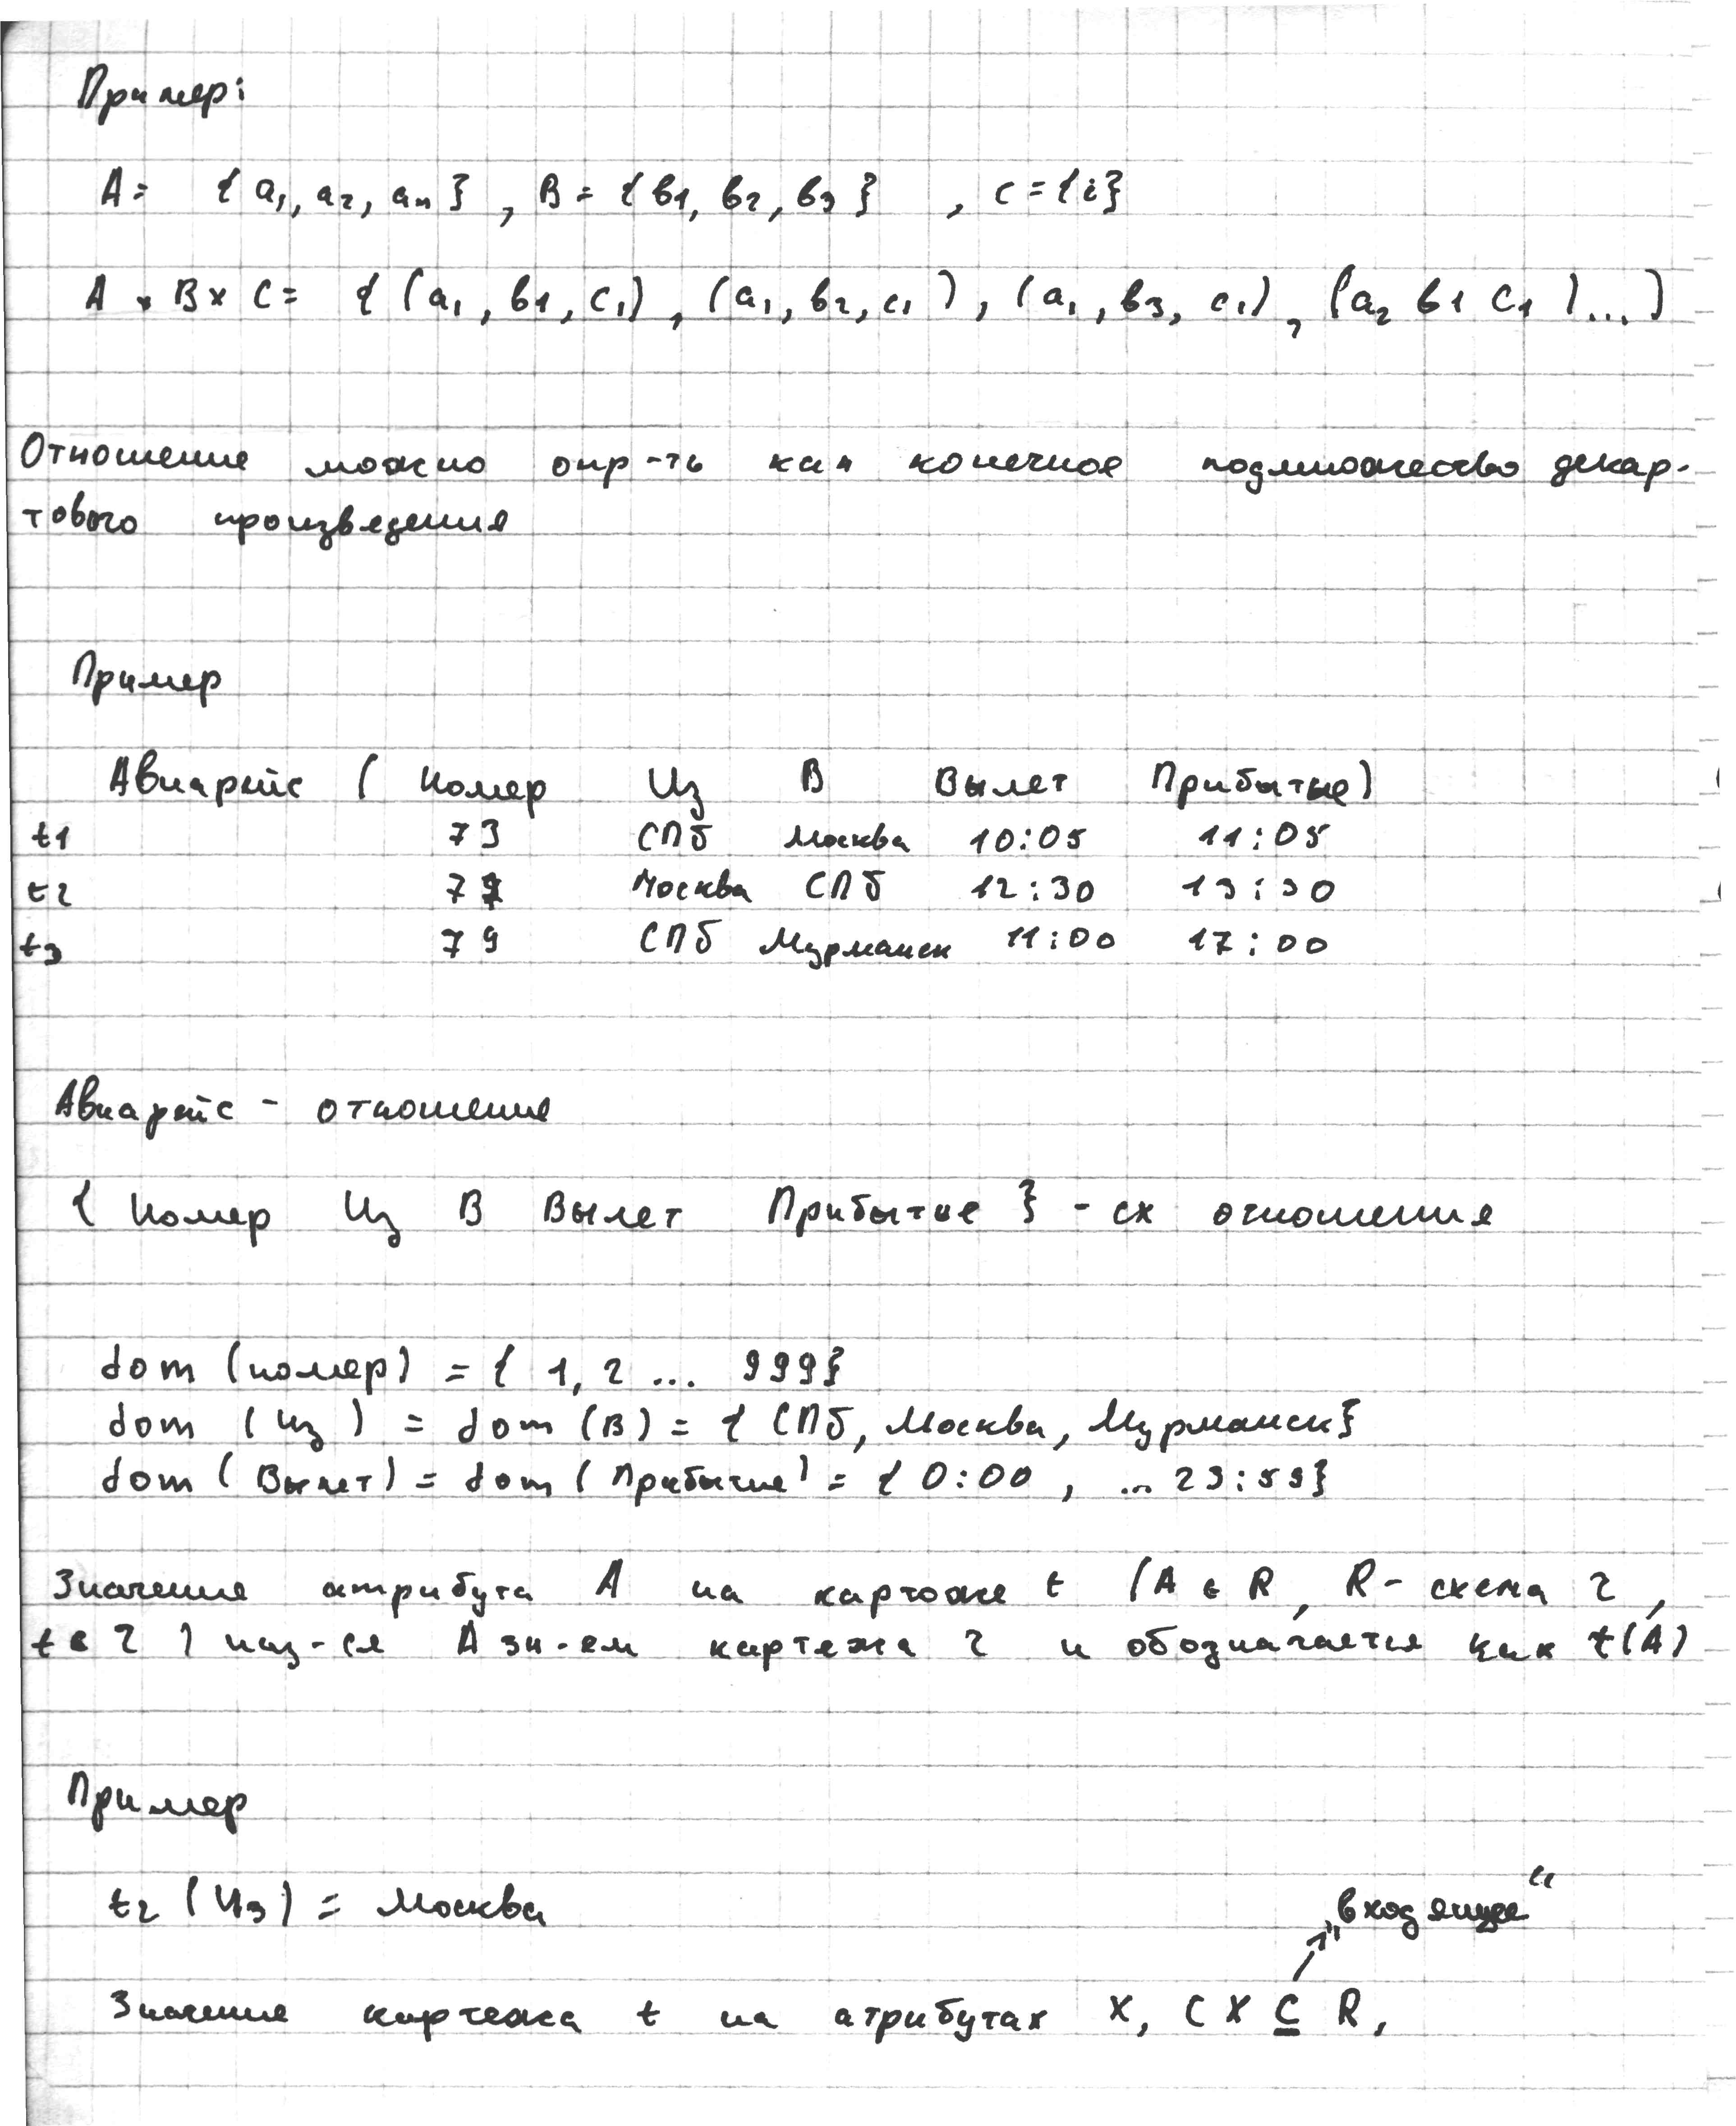 Пример:
A = { a₁, a₂, aₙ } , B = { b1, b₂, b₃ } , c = {i}
A × B × C = { (a₁, b1, c₁), (a₁, b₂, c₁), (a₁, b₃, c₁), (a₂ b1 c₁)...}
Отношение можно опр-ть как конечное подмножество декар-
тового произведения
Пример
Авиарейс ( Номер Из В Вылет Прибытие)
t1 73 СПб Москва 10:05 11:05
t2 Москва СПб 12:30 13:30
t3 79 СПб Мурманск 11:00 17:00
Авиарейс - отношение
{ Номер Из В Вылет Прибытие } - сх отношения
dom (номер) = { 1, 2 ... 999}
dom (Из) = dom (В) = { СПб, Москва, Мурманск}
dom (Вылет) = dom (Прибытие) = { 0:00 , ... 23:59}
Значение атрибута A на картоже t (A ∈ R, R - схема r,
t ∈ r ) наз-ся A зн-ем картежа r и обозначается как t(A)
Пример
t₂ (Из) = Москва
„входящее“
Значение картежа t на атрибутах X, ( X ⊆ R,